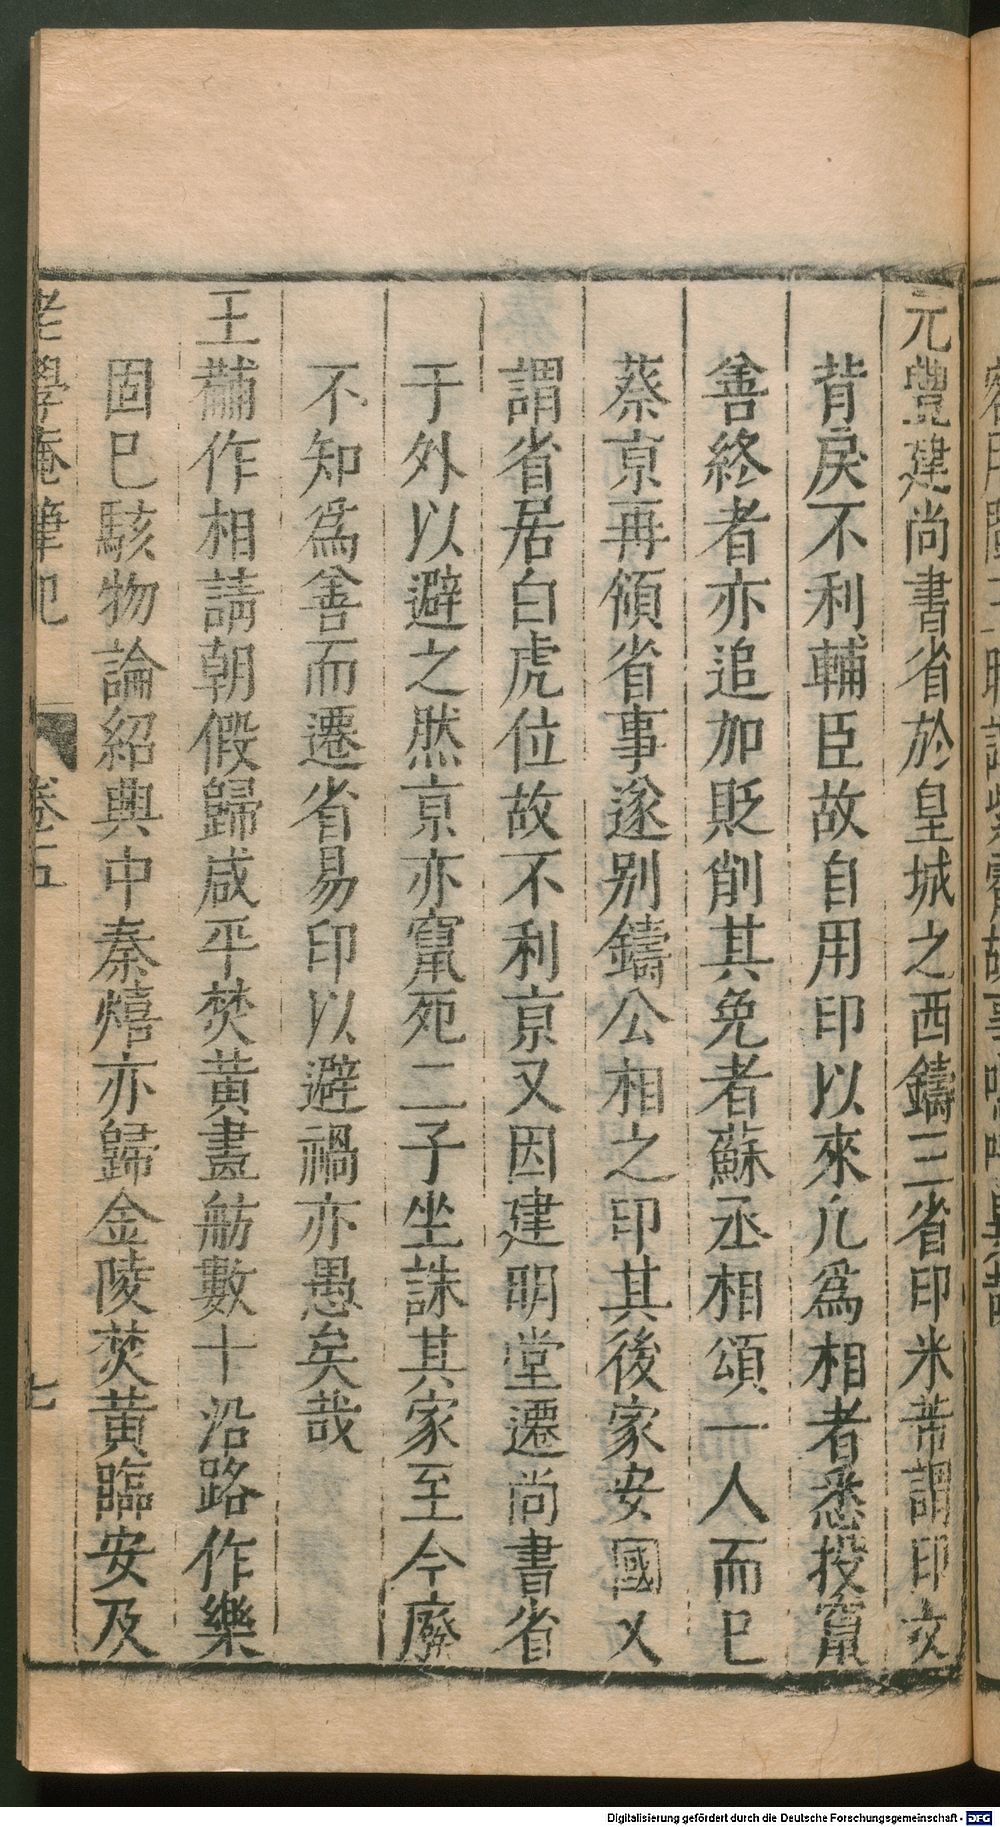 元豐建尚書省於皇城之西鑄三省印米芾謂印文
背戾不利輔臣故自用印以來凢爲相者悉投竄
善終者亦追加貶削其免者蘇丞相頌一人而巳
蔡亰再領省事遂别鑄公相之印其後家安國又
謂省居白虎位故不利亰又因建明堂遷尚書省
于外以避之然亰亦竄死二子坐誅其家至今廢
不知爲善而遷省易印以避禍亦愚矣哉
王黼作相請朝假歸咸平焚黃畫舫數十沿路作樂
固巳駭物論紹興中秦熺亦歸金陵焚黃臨安及
老學庵筆記 卷五 七
Digitalisierung gefördert durch die Deutsche Forschungsgemeinschaft - DFG